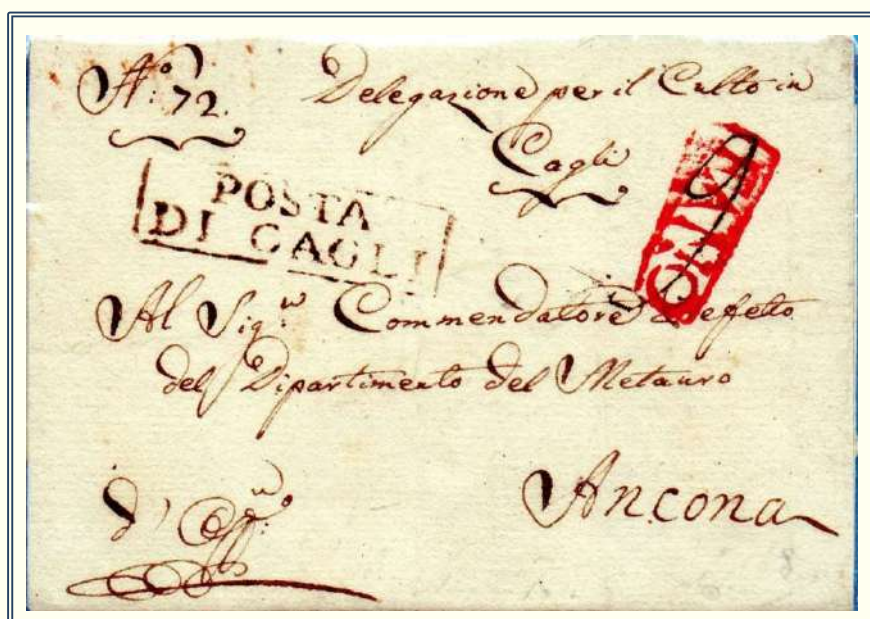 N.º 72. Delegazione per il Culto in
Cagli
POSTA
DI CAGLI
Al Sig.r Commendatore Prefetto
del Dipartimento del Metauro
Ancona
d'Uff.º